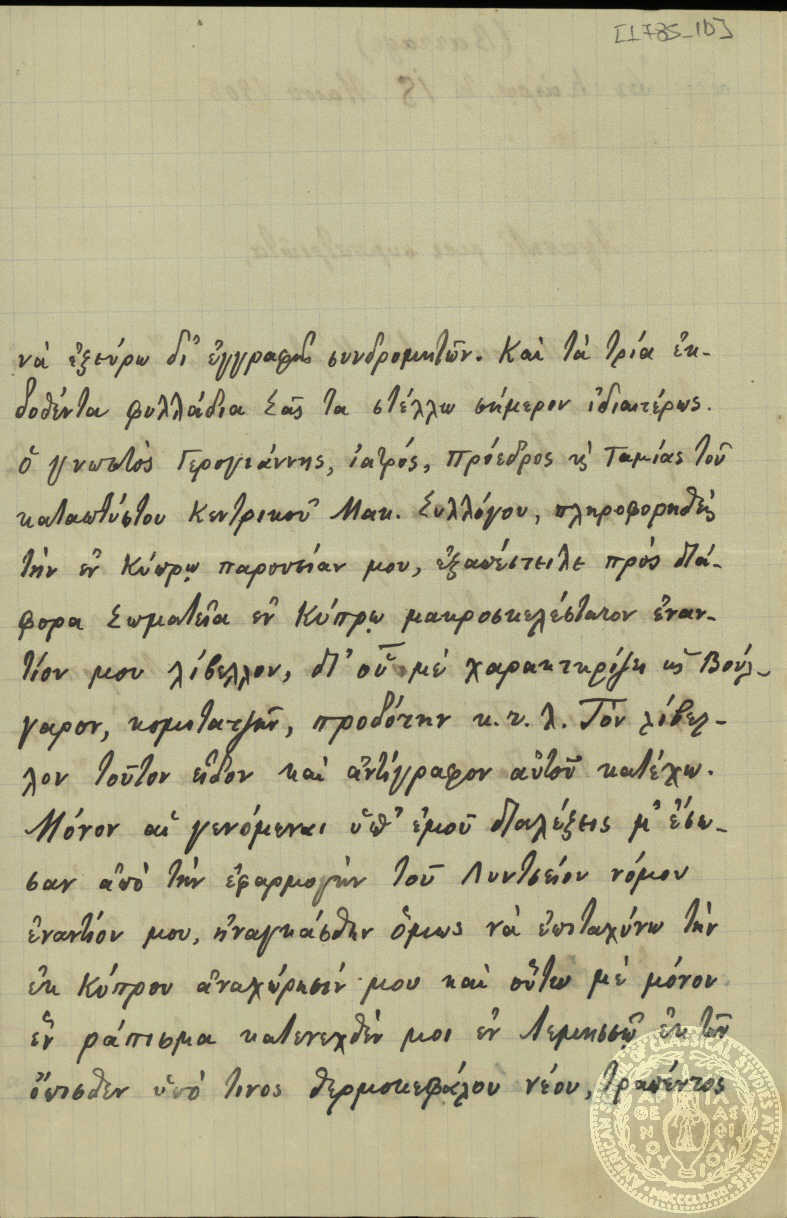 [1785_1D]
νὰ ἐξεύρω δι' ἐγγραφῆς συνδρομητῶν. Καὶ τὰ τρία ἐκ-
δοθέντα φυλλάδια Σᾶς τα στέλλω σήμερον ἰδιαιτέρως.
Ὁ γνωστὸς Γερογιάννης, ἰατρός, Πρόεδρος κὶ Ταμίας τοῦ
καταπτύστου Κεντρικοῦ Μακ. Συλλόγου, πληροφορηθεὶς
τὴν ἐν Κύπρῳ παρουσίαν μου, ἐξαπέστειλε πρὸς διά-
φορα Σωματεῖα ἐν Κύπρῳ μακροσκελέστατον ἐναν-
τίον μου λίβελλον, δι' οὗ μὲ χαρακτηρίζει ὡς Βούλ-
γαρον, κομιτατζῆν, προδότην κ.τ.λ. Τὸν λίβελ-
λον τοῦτον εἶδον καὶ ἀντίγραφον αὐτοῦ κατέχω.
Μόνον αἱ γενόμεναι ὑπ' ἐμοῦ διαλέξεις μ' ἔσω-
σαν ἀπὸ τὴν ἐφαρμογὴν τοῦ Λυντσείου νόμου
ἐναντίον μου, ἠναγκάσθην ὅμως νὰ ἐπιταχύνω τὴν
ἐκ Κύπρου ἀναχώρησίν μου καὶ οὕτω μὲ μόνον
ἓν ράπισμα κατενεχθὲν μοι ἐν Λεμησσῷ ἐκ τῶν
ὄπισθεν ὑπό τινος θερμοκεφάλου νέου, τραπέντος
AMERICAN SCHOOL OF CLASSICAL STUDIES AT ATHENS
MDCCCLXXXI
ΠΑΡΘΕΝΟΥ ΦΙΛΑΣ